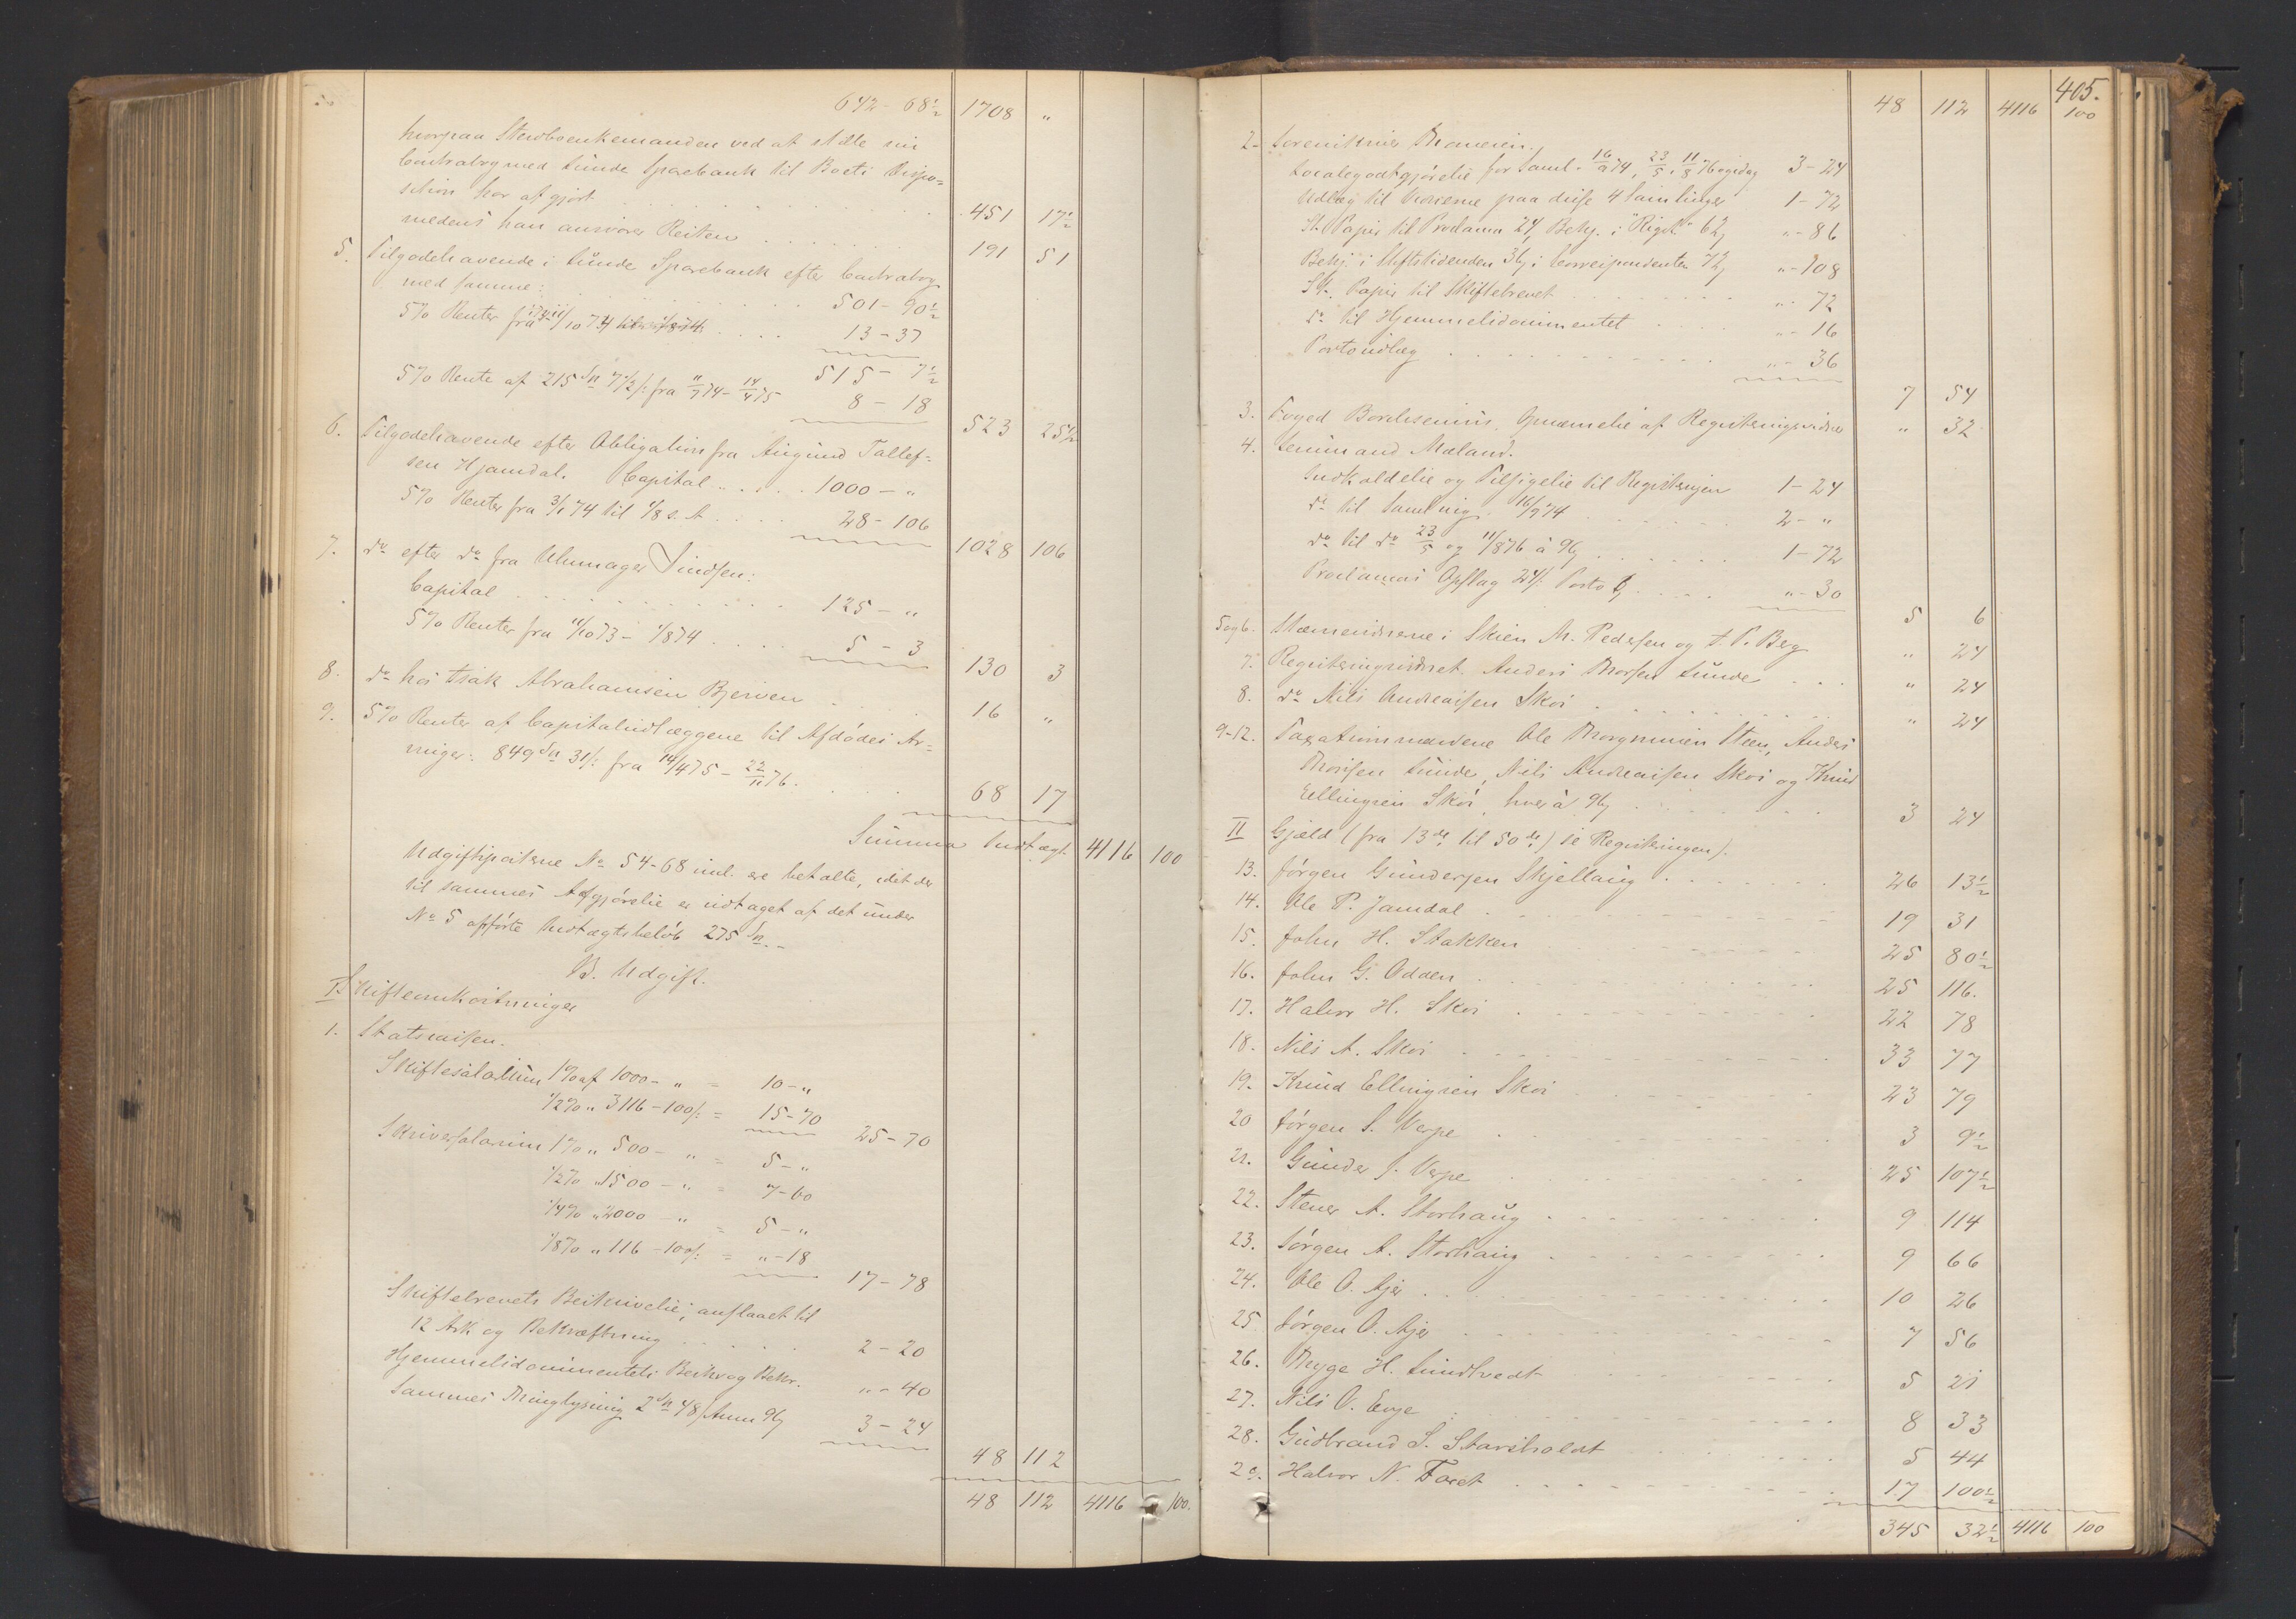 642-68½ 1708 "
hvorpaa Stervboenkemanden ved at stille sin
Contrabog med Lunde Sparebank til Boets Dispo=
sition har afgjort . . . . 451 17½
medens han ansvarer Resten . . . . 191 51
5. Tilgodehavende i Lunde Sparebank efter Contrabog
med samme: . . . . 501-90½
5% Renter fra 11/10 73 . . . . 13-37
515-7½
5% Rente af 215 Sp 7½ s: fra 11/7 74 - 14/4 75 8-18
523 25½
6. Tilgodehavende efter Obligation fra Augund Tallef=
sen Hjamdal. Capital . . . . 1000-"
5% Renter fra 3/1 74 til 1/8 s. A. . . . 28-106
1028 106
7. do efter do fra Uhrmager Sindsen:
Capital . . . . 125-"
5% Renter fra 11/10 73 - 1/8 74 . . . 5-3
130 3
8. do hos Isak Abrahamsen Bjerven . . . 16 "
9. 5% Renter af Capitaludlæggene til Afdødes Ar=
vinger: 849 Sp 31 s: fra 14/4 75 - 22/11 76. . . . 68 17
Summa Indtægt 4116 100
Udgiftsposterne No 54-68 incl. ere betalte, idet der
til sammes Afgjørelse er udtaget af det under
No 5 opførte Indtægtsbeløb 275 Sp. -
B. Udgift.
I. Skifteomkostninger
1. Statscassen.
Skiftesalarium 1% af 1000-" = 10-"
1/2% " 3116-100 s: = 15-70
25-70
Skriversalarium 1% " 500-" = 5-"
1/2% " 1500-" = 7-60
1/4% " 2000-" = 5-"
1/8% " 116-100 s: = "-18
17-78
Skiftebrevets Beskrivelse, anslaaet til
12 Ark og Bekræftning . . . . 2-20
Hjemmelsdocumentets Beskr og Bekr. "-40
Sammes Thinglysning 2 Sp 48 s Ann 96 3-24
48 112
48 112 4116 100.
405.
48 112 4116 100
2. Sorenskriver Thomesen.
Localegodtgjørelse for Saml. 16/9 74, 23/5, 11/8 76 og idag 3-24
Udlæg til Vidnerne paa disse 4 Samlinger 1-72
St. Papir til Proclama 24, Bekj. i "Rigst." 62 "-86
Bekj. i Stiftstidenden 36, i Correspondenten 72 "-108
St. Papir til Skiftebrevet . . . . "-72
do til Hjemmelsdocumentet . . . . "-16
Portoudlæg . . . . "-36
7 54
3. Foged Borchsenius. Opnævnelse af Registreringsvidner " 32
4. Lensmand Mæland.
Indkaldelse og Tilsigelse til Registeringen 1-24
do til Samling 16/9 74 . . . . 2-"
do til do 23/5 og 11/8 76 à 96 . . . . 1-72
Proclamas Opslag 24 s: Porto 6 . . . . "-30
5 6
5 og 6. Stævnevidnerne i Skien M. Pedersen og T. P. Berg " 24
7. Registeringsvidnet Anders Thorsen Lunde . . . " 24
8. do Nils Andreassen Skoi . . . . " 24
9-12. Taxationsmændene Ole Thorgrimsen Steen, Anders
Thorsen Lunde, Nils Andreassen Skoi og Knud
Ellingsen Skoi, hver à 96 . . . . 3 24
II Gjæld (fra 13de til 50de) se Registeringen).
13. Jørgen Gundersen Skjellaug . . . . 26 13½
14. Ole P. Jamdal . . . . 19 31
15. John H. Stakken 25 80½
16. John G. Odden . . . . 25 116.
17. Halvor H. Skoi . . . . 22 78
18. Nils A. Skoi . . . . 33 77
19. Knud Ellingsen Skoi . . . . 23 79
20 Jørgen S. Verpe . . . . 3 9½
21. Gunder J. Verpe . . . . 25 107½
22. Stener A. Storhaug . . . . 9 114
23. Jørgen A. Storhaug . . . . 9 66
24. Ole O. Ajer . . . . 10 26
25. Jørgen O. Ajer . . . . 7 56
26. Thyge H. Lundtvedt . . . . 5 21
27. Nils O. Evje . . . . 8 33
28. Gudbrand S. Stavsholdt . . . . 5 44
29. Halvor N. Foret . . . . 17 100½
345 32½ 4116 100